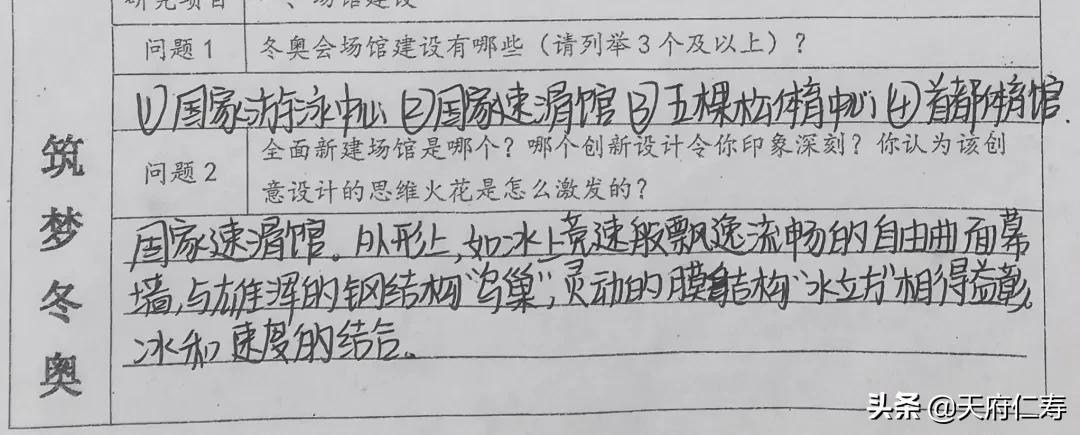 研究项目 一、场馆建设
问题1 冬奥会场馆建设有哪些（请列举3个及以上）？
①国家游泳中心 ②国家速滑馆 ③五棵松体育中心 ④首都体育馆.
问题2 全面新建场馆是哪个？哪个创新设计令你印象深刻？你认为该创
意设计的思维火花是怎么激发的？
国家速滑馆。从形上,如冰上竞速般飘逸流畅的自由曲面幕
墙,与雄浑的钢结构“鸟巢”,灵动的膜结构“水立方”相得益彰。
冰和速度的结合。
筑梦冬奥
头条 @天府仁寿